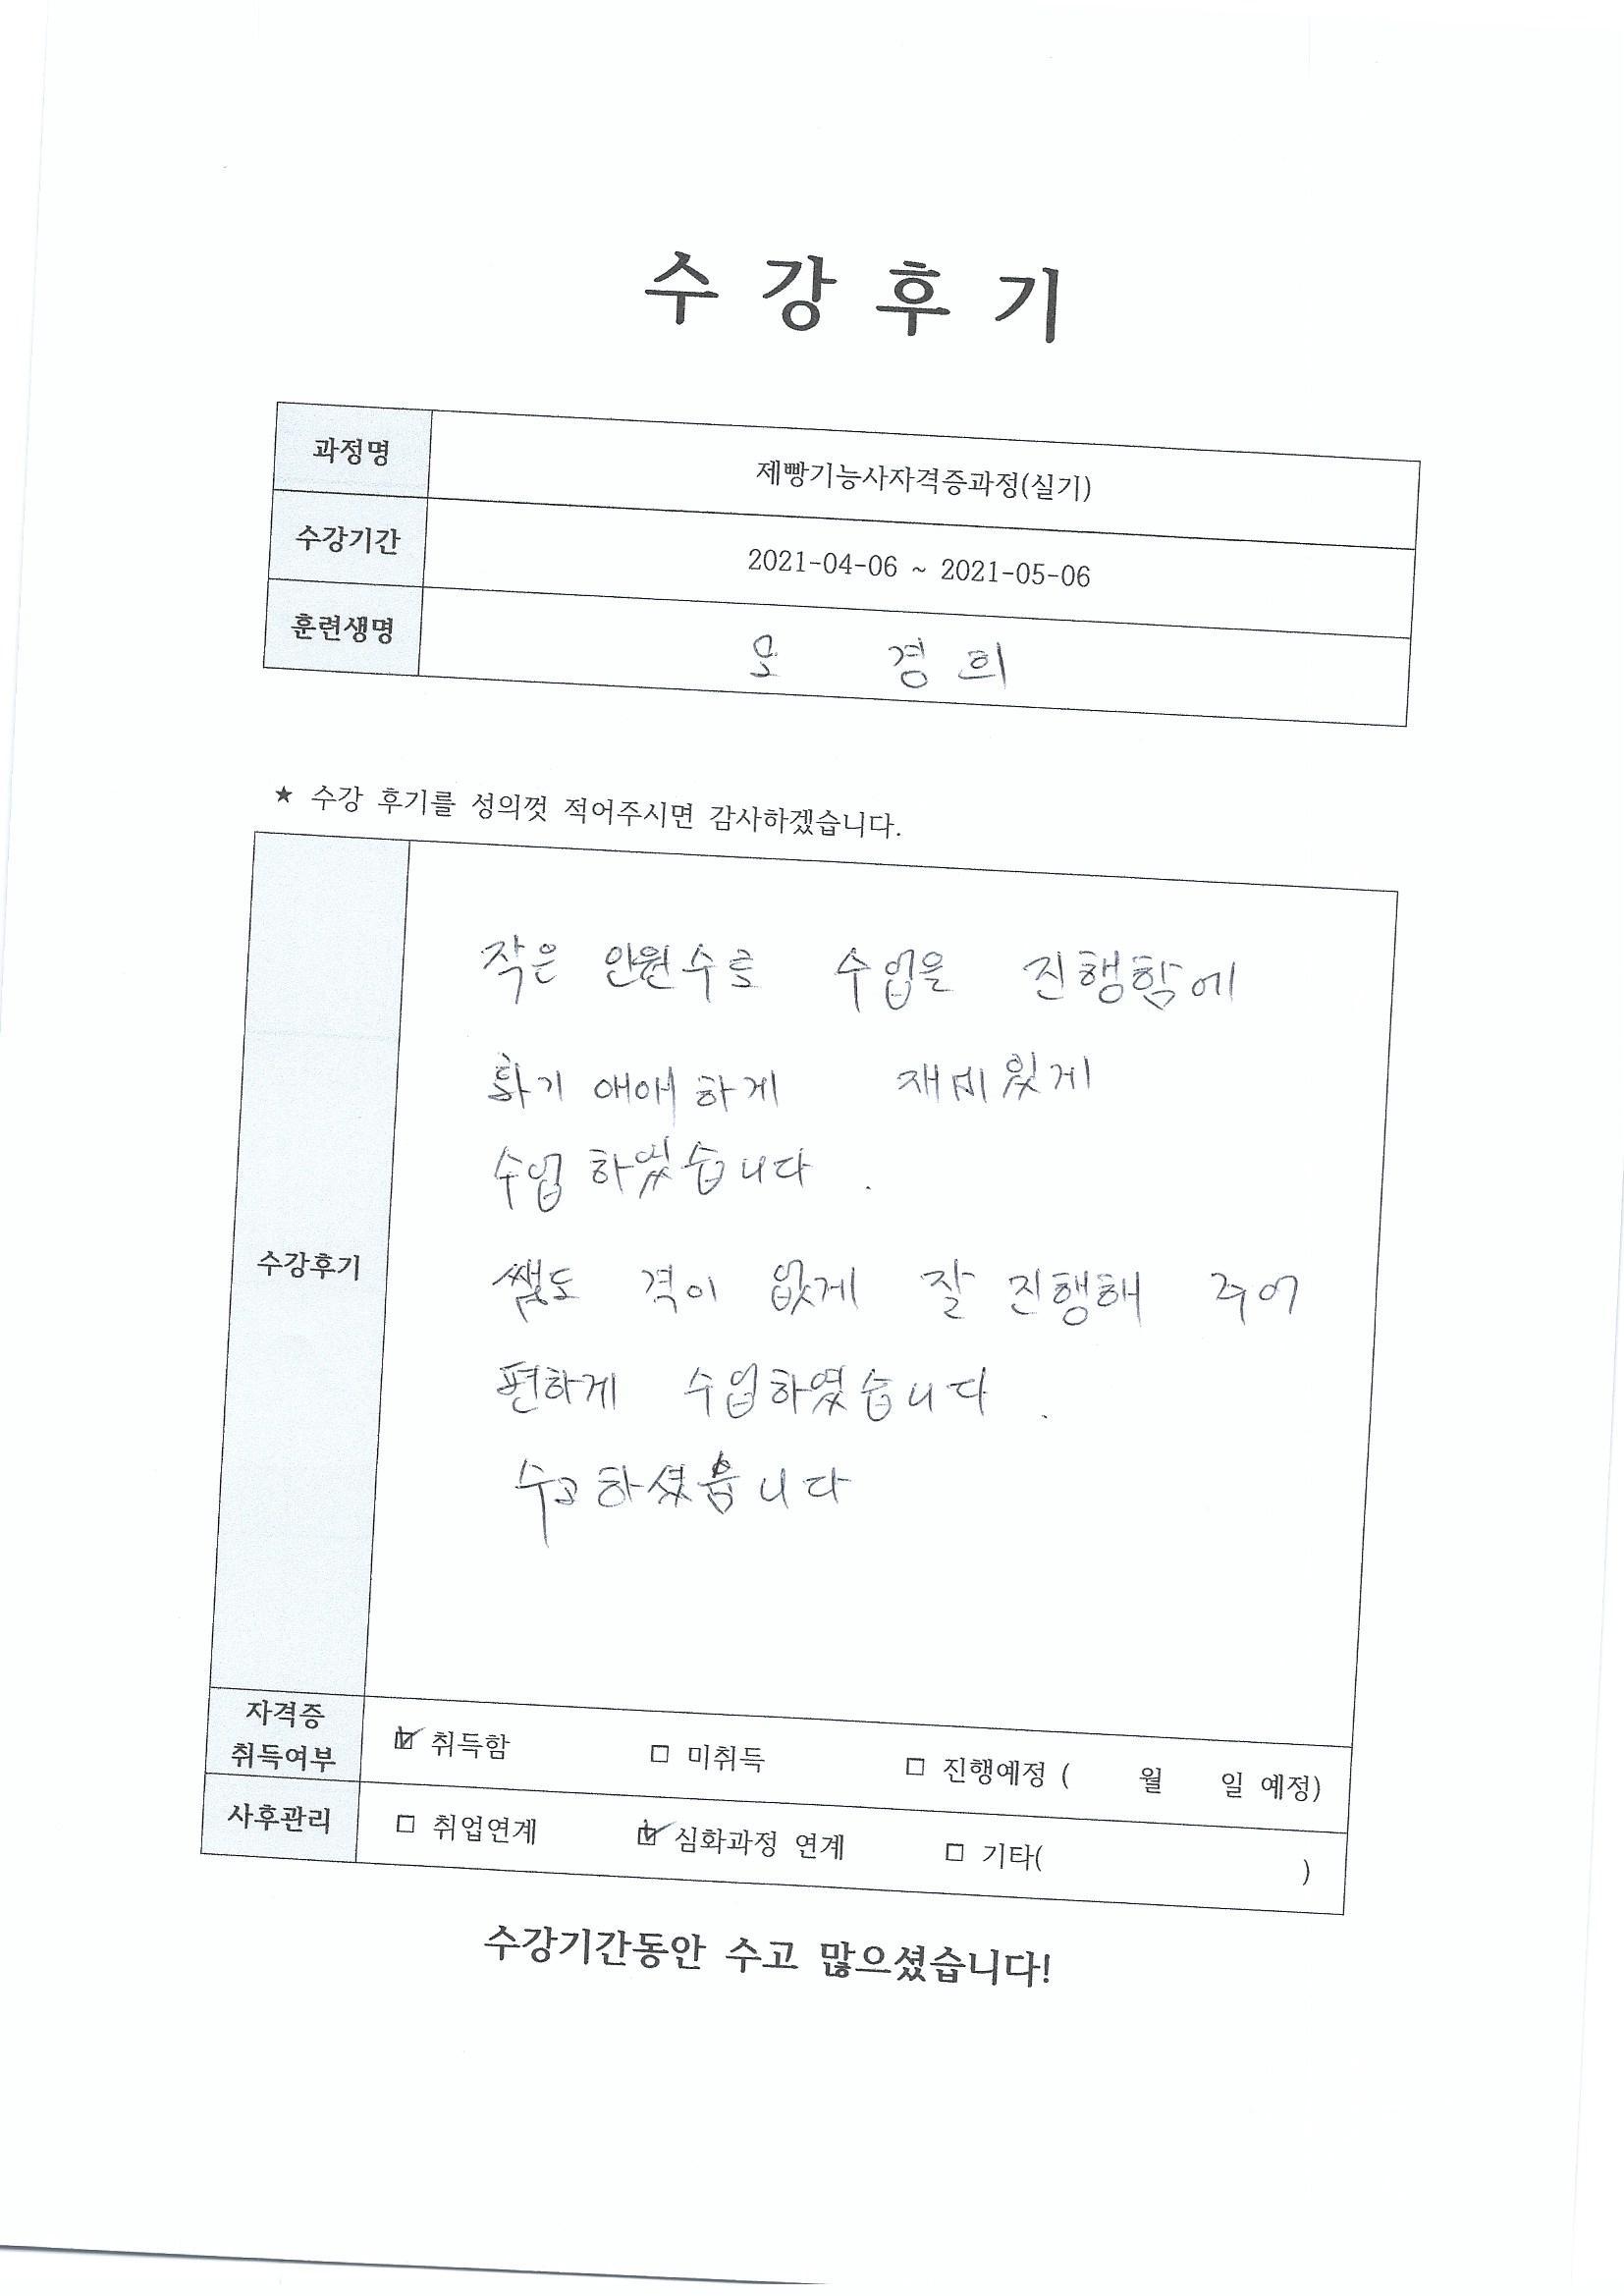 수강후기
과정명 제빵기능사자격증과정(실기)
수강기간 2021-04-06 ~ 2021-05-06
훈련생명 오 경희
★ 수강 후기를 성의껏 적어주시면 감사하겠습니다.
수강후기
작은 인원수로 수업을 진행함에
화기 애애하게 재미있게
수업 하였습니다.
쌤도 격이 없게 잘 진행해 주어
편하게 수업하였습니다.
수고하셨습니다
자격증 취득여부 ☑ 취득함 □ 미취득 □ 진행예정 ( 월 일 예정)
사후관리 □ 취업연계 ☑ 심화과정 연계 □ 기타( )
수강기간동안 수고 많으셨습니다!